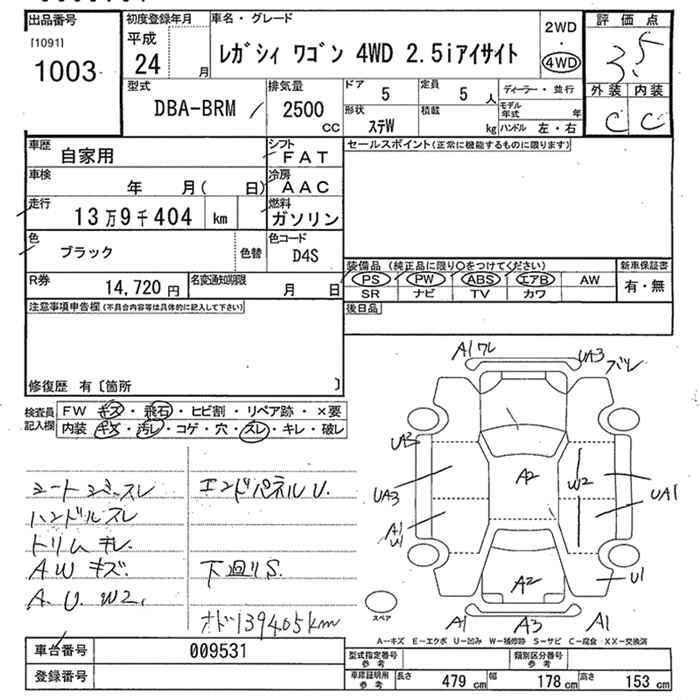 出品番号
[1091]
1003
初度登録年月
平成
24 月
車名・グレード
レガシィ ワゴン 4WD 2.5iアイサイト
2WD
・
4WD
評価点
3.5
外装 内装
C C
型式
DBA-BRM
排気量
2500
CC
ドア
5
定員
5 人
ディーラー・並行
モデル
年式 年
形状
ステW
積載
kg
ハンドル 左・右
車歴
自家用
シフト
FAT
車検
年 月( 日)
冷房
AAC
走行
13万9千404 km
燃料
ガソリン
色
ブラック
色替
色コード
D4S
R券
14,720円
名変通知期限
月 日
セールスポイント(正常に機能するものに限ります)
装備品 (純正品に限り○をつけてください)
PS PW ABS エアB AW
SR ナビ TV カワ
新車保証書
有・無
後日品
注意事項申告欄(不具合内容等は具体的に記入して下さい)
修復歴 有〔箇所 〕
検査員
記入欄
FW キズ・飛石・ヒビ割・リペア跡・×要
内装 キズ・汚レ・コゲ・穴・スレ・キレ・破レ
シートシミ・スレ
ハンドルスレ
トリムキレ
AWキズ
A.U.W2.
エンドパネルU.
下廻りS.
オド139405km
A1ワレ
UA3
ズレ
UA3
UA3
A1
U1
A2
W2
UA1
U1
A2
A1
A3
A1
スペア
A-キズ E-エクボ U-凹み W-補修跡 S-サビ C-腐食 XX-交換済
車台番号
009531
登録番号
型式指定番号
参考
類別区分番号
参考
車庫証明用
参考
長さ
479 cm
幅
178 cm
高さ
153 cm